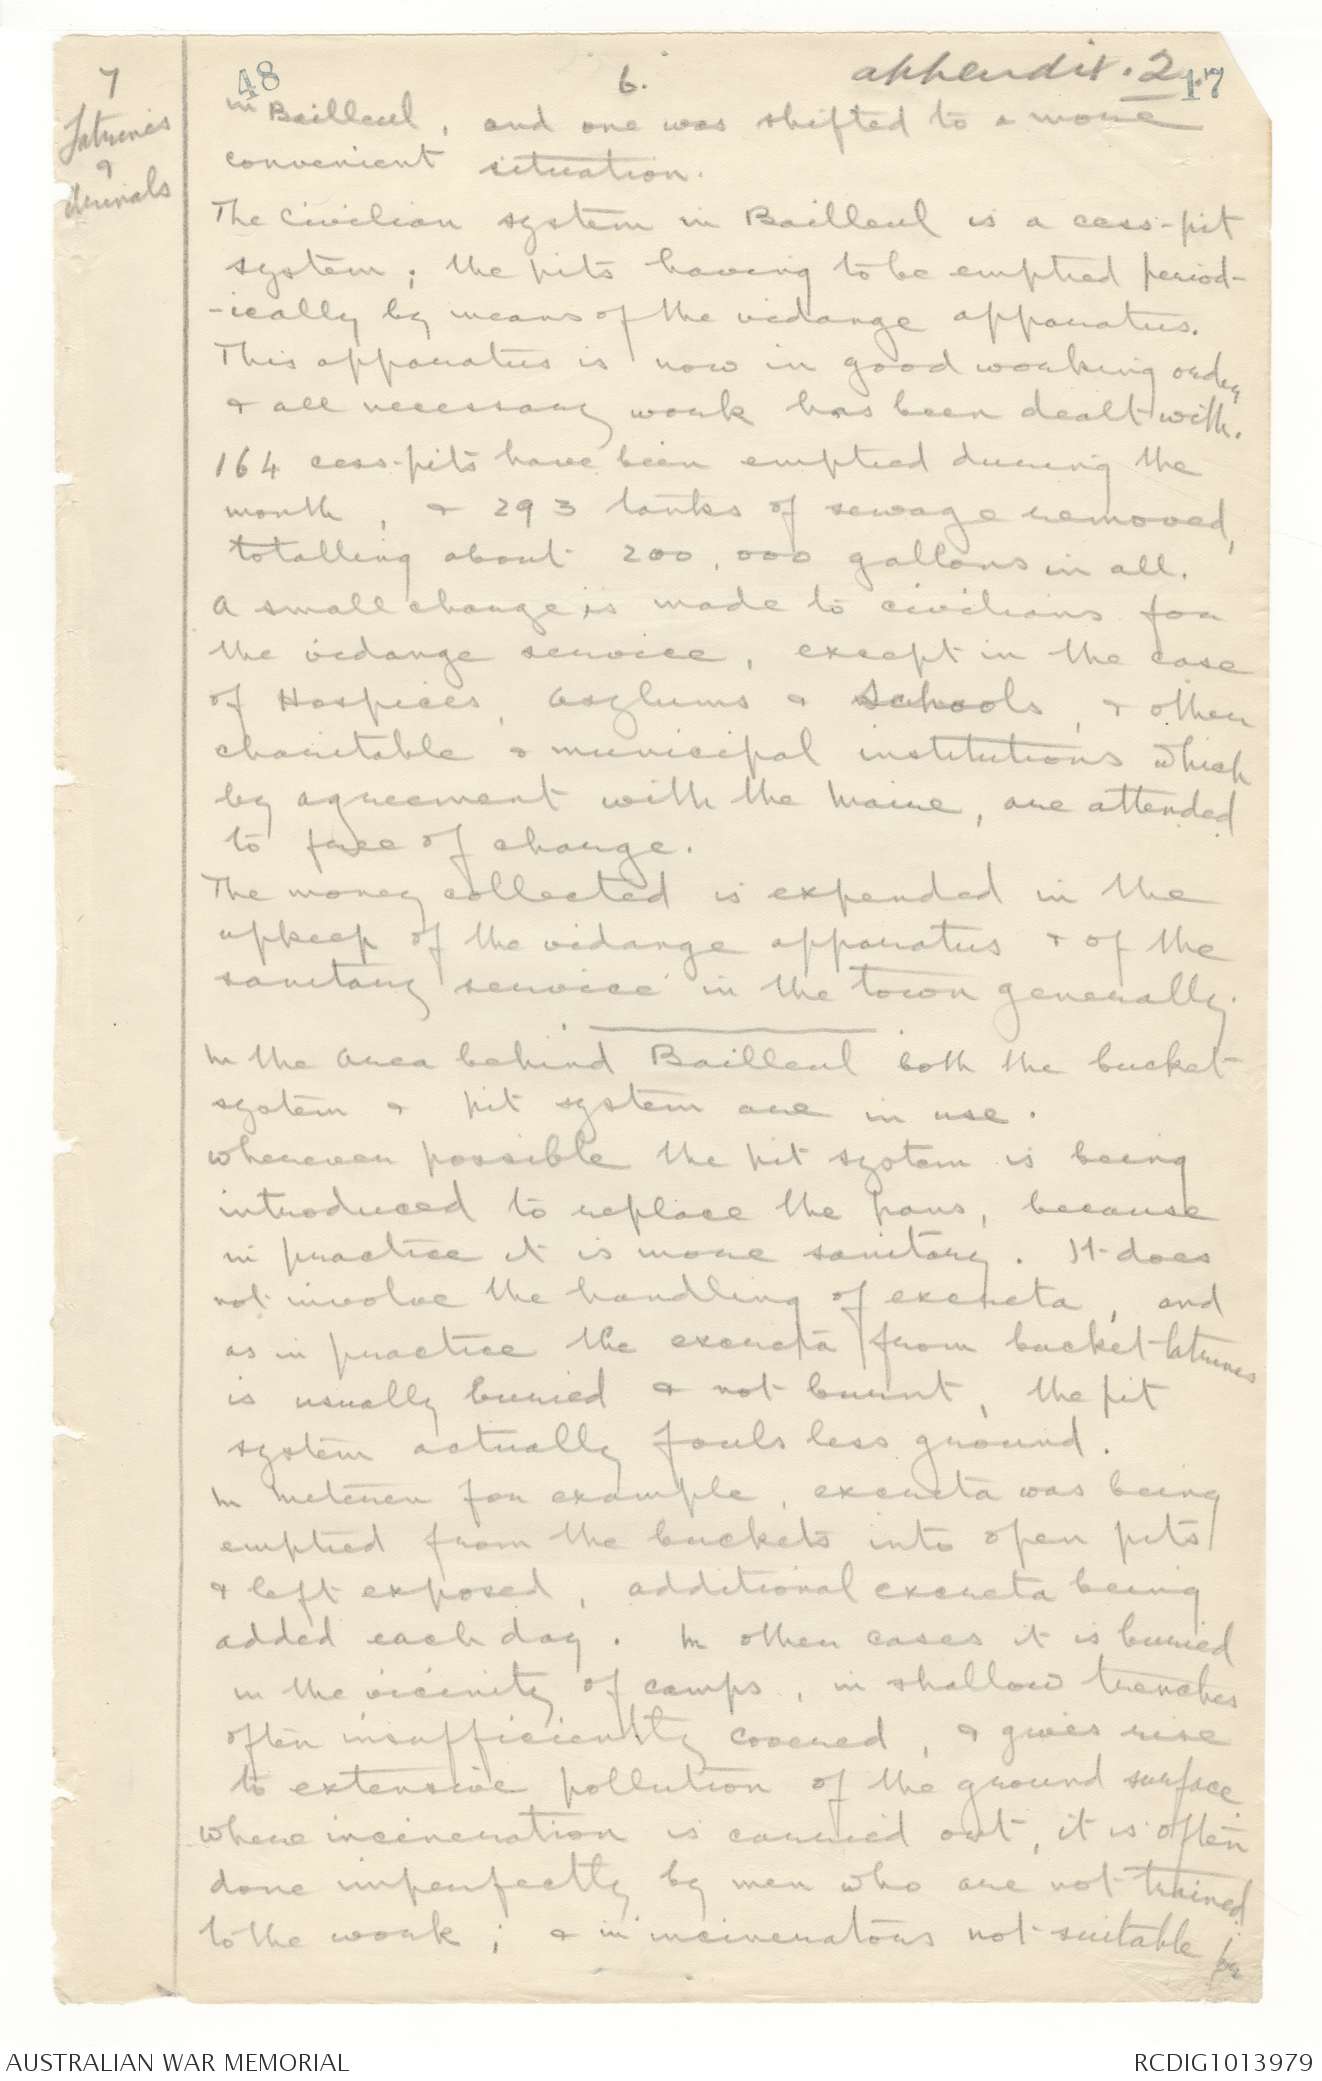 7
Latrines
&
Urinals
48
6.
appendix. 2.
17
in Bailleul, and one was shifted to a more
convenient situation.
The civilian system in Bailleul is a cess-pit
system; the pits having to be emptied period-
-ically by means of the vidange apparatus.
This apparatus is now in good working order,
& all necessary work has been dealt with.
164 cess-pits have been emptied during the
month, & 293 tanks of sewage removed,
totalling about 200,000 gallons in all.
A small charge is made to civilians for
the vidange service, except in the case
of Hospices, Asylums & Schools, & other
charitable & municipal institutions which
by agreement with the Maire, are attended
to free of charge.
The money collected is expended in the
upkeep of the vidange apparatus & of the
sanitary service in the town generally.
In the area behind Bailleul both the bucket
system & pit system are in use.
Wherever possible the pit system is being
introduced to replace the pans, because
in practice it is more sanitary. It does
not involve the handling of excreta, and
as in practice the excreta from bucket latrines
is usually buried & not burnt, the pit
system actually fouls less ground.
In Meteren for example, excreta was being
emptied from the buckets into open pits
& left exposed, additional excreta being
added each day. In other cases it is buried
in the vicinity of camps, in shallow trenches
often insufficiently covered, & gives rise
to extensive pollution of the ground surface
Where incineration is carried out, it is often
done imperfectly by men who are not trained
to the work; & in incinerators not suitable for
AUSTRALIAN WAR MEMORIAL
RCDIG1013979